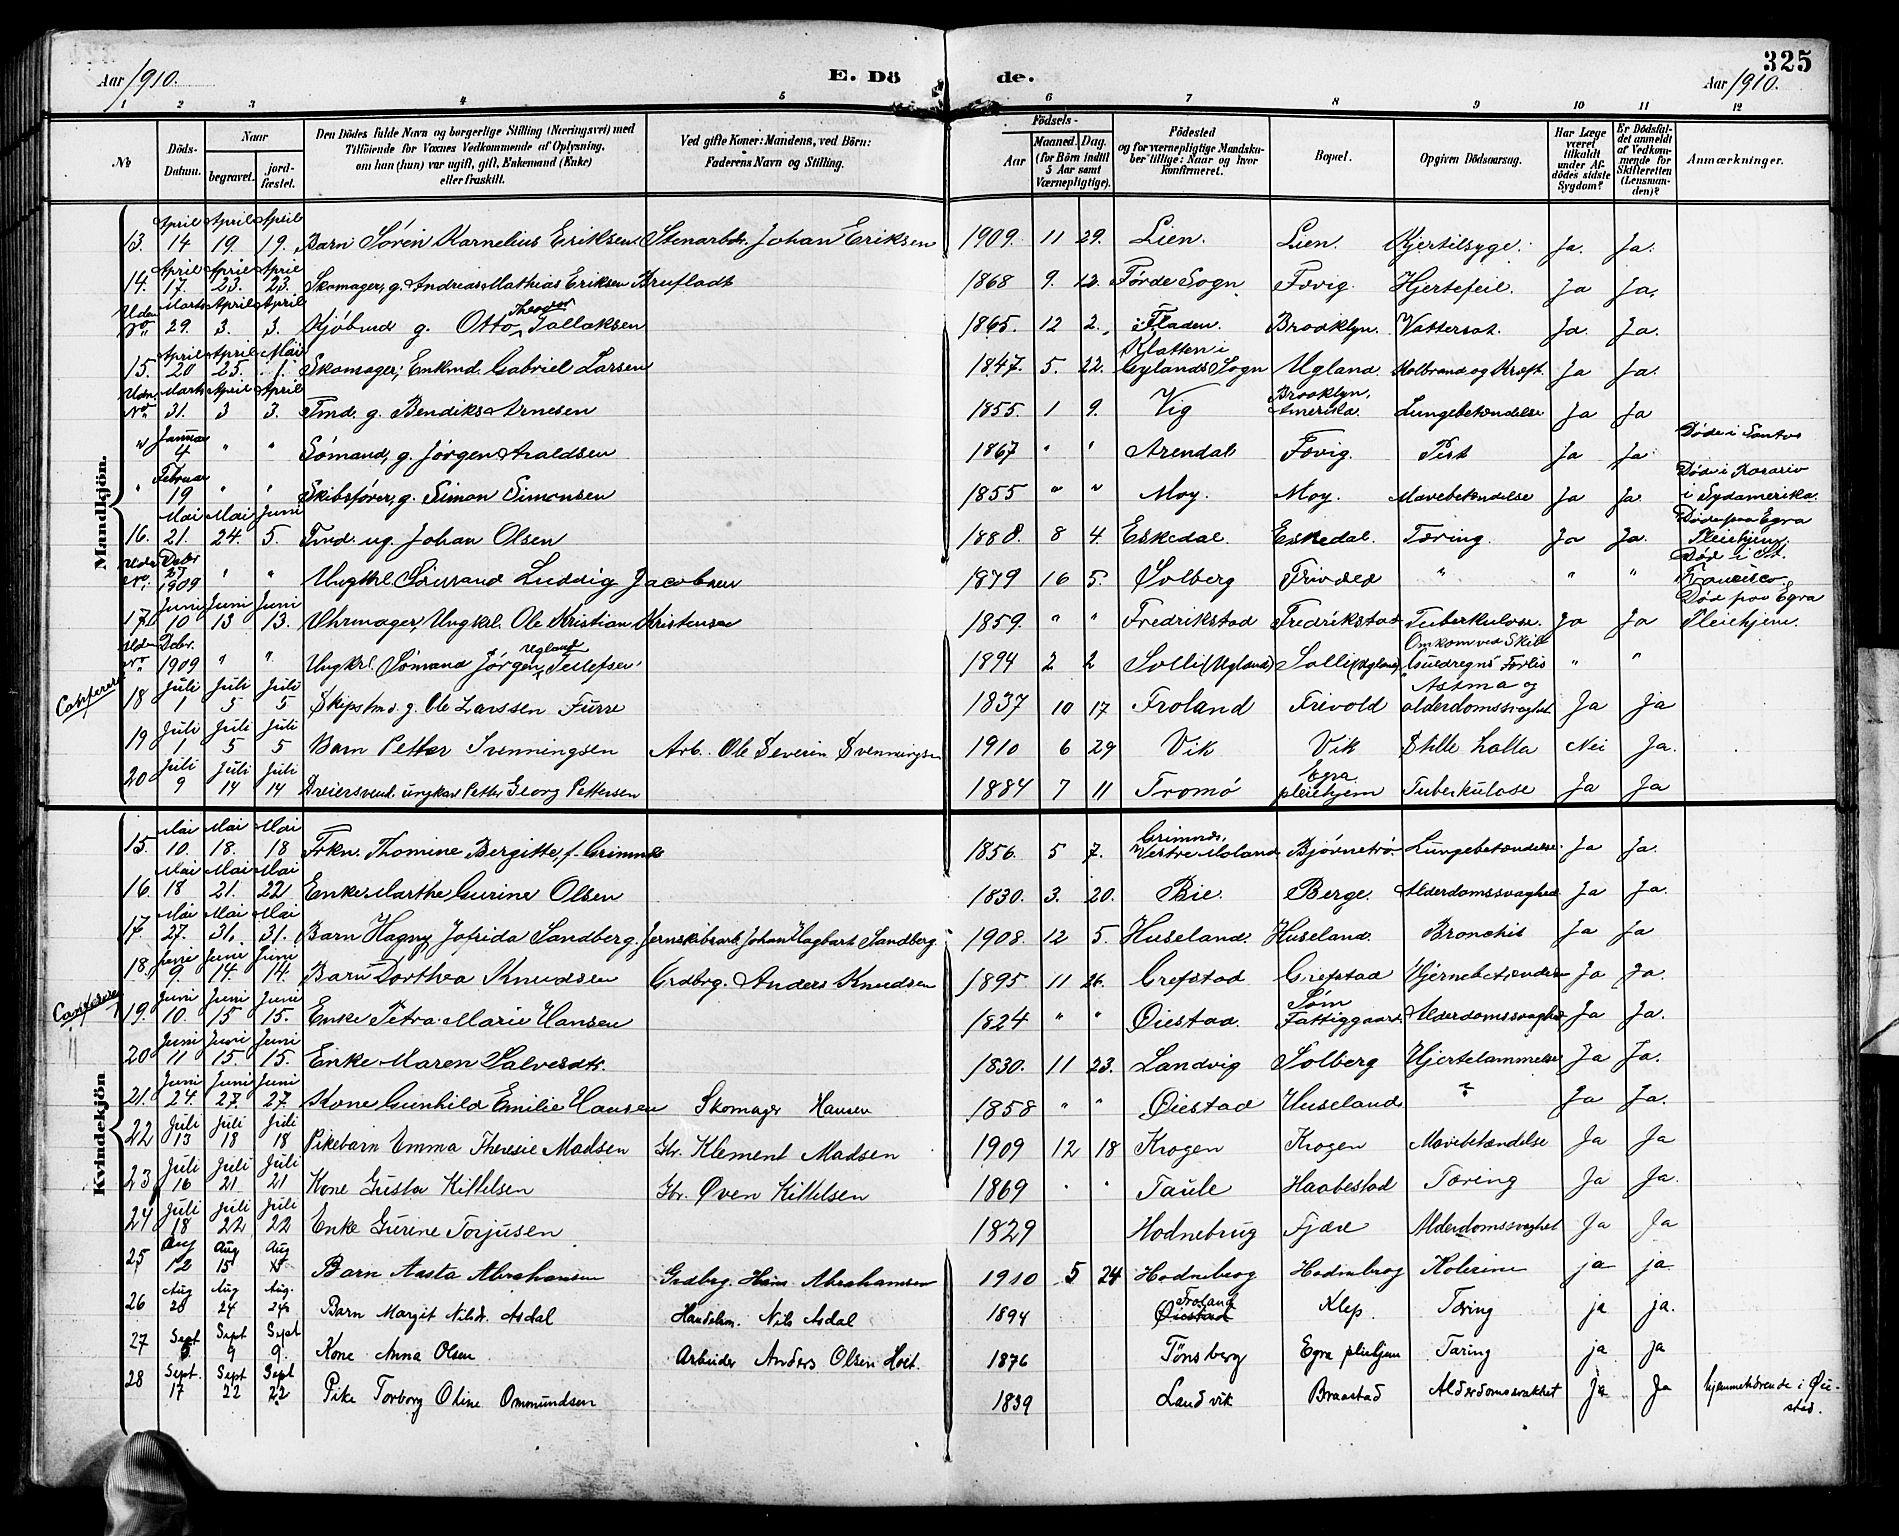 325
Aar 1910. E. Dö de. Aar 1910.
1 2 3 4 5 6 7 8 9 10 11 12
No Döds-Datum. Naar begravet. jord-fæstet. Den Dödes fulde Navn og borgerlige Stilling (Næringsvei) med Tilföiende for Voxnes Vedkommende af Oplysning, om han (hun) var ugift, gift, Enkemand (Enke) eller fraskilt. Ved gifte Koner: Mandens, ved Börn: Faderens Navn og Stilling. Födsels- Aar Maaned. Dag. (for Börn indtil 5 Aar samt Værnepligtige). Födested og for værnepligtige Mandska-ber tillige: Naar og hvor konfirmeret. Bopæl. Opgiven Dödsaarsag. Har Læge været tilkaldt under Af-dödes sidste Sygdom? Er Dödsfal-det anmeldt af Vedkom-mende for Skifteretten (Lensman-den)? Anmærkninger.
Mandkjön.
13. April 14 April 19. April 19. Barn Sören Kornelius Eriksen. Stenarbdr. Johan Eriksen 1909. 11 29. Lien. Lien. Kjertilsyge. Ja. Ja.
14. April 17. April 23. April 23. Skomager, g. Andreas Mathias Eriksen Brufladt 1868 9. 12. Førde Sogn Fævig. Hjertefeil. Ja Ja.
Uden No. Marts 29. April 3. April 3. Kjøbmd g. Otto Theodor Tallaksen 1865. 12 2. i Fladen. Brooklyn. Vattersot. Ja. Ja.
15. April 20 April 25. Mai 1. Skomager, Enkmd. Gabriel Larsen 1847. 5. 22. Klatten i Gylands Sogn Ugland. Kolbrand og Kræft. Ja Ja.
Uden No. Marts 31. April 3 April 3. Tmd. g. Bendiks Arnesen 1855. 1 9. Vig Brooklyn, Amerika. Lungebetændelse Ja Ja
" Januar 4 " " Sømand, g. Jørgen Araldsen 1867 " " Arendal Fævig. Pest Ja Ja Døde i Santos
" Februar 19 " " Skibsfører, g. Simon Simonsen 1855 " " Moy. Moy. Mavebetændelse Ja Ja. Død i Rosario i Sydamerika.
16. Mai 21. Mai 24. Juni 5. Tmd. ug. Johan Olsen 1888. 8 4. Eskedal. Eskedal. Tæring. Ja Ja. Døde paa Egra Pleiehjem.
Uden No. Debr 27 1909 " " Ungkrl. Sømand Ludvig Jacobsen 1879 16 5. Solberg Frivold " " " Død i St. Francisco.
17. Juni 10 Juni 13 Juni 13. Uhrmager, Ungkrl. Ole Kristian Kristensen 1859. " " Fredrikstad Fredrikstad Tuberkulose. Ja Ja Død paa Egra Pleiehjem.
Uden No. Debr. 1909 " " Ungkrl. Sømand Jørgen Ugland Tellefsen 1894 2 2 Solli (Ugland) Solli (Ugland) Omkom ved Skib Guldregns Forlis " "
18 Juli 1 Juli 5 Juli 5 Skipstmd. g. Ole Larssen Furre 1837 10 17 Froland Frevold Astma og alderdomssvaghet Ja Ja
19 Juli 1 Juli 5 Juli 5 Barn Petter Svenningsen Arb. Ole Severin Svenningsen 1910 6 29 Vik Vik Stille Lalla Nei Ja.
20 Juli 9 Juli 14 Juli 14 Dreiersvend. ungkar Petter Georg Pettersen 1884 7 11 Tromø Egra pleiehjem Tuberkulose Ja Ja
Kvindekjön
15. Mai 10. Mai 18. Mai 18 Frkn. Thomine Bergitte, f. Grimnes 1856. 5 7. Grimnes, Vestre Moland Bjørnetrø. Lungebetændelse. Ja Ja.
16. Mai 18 Mai 21. Mai 22. Enke Marthe Gurine Olsen 1830. 3. 20. Bie. Berge. Alderdomssvaghed Ja Ja.
17. Mai 27. Mai 31. Mai 31. Barn Hagny Jofrida Sandberg. Jernskibsarb. Johan Hagbart Sandberg. 1908. 12 5. Huseland. Huseland. Bronchit Ja Ja
18. Juni 9 Juni 14. Juni 14. Barn Dorthea Knudsen Grdbrg. Anders Knudsen 1895 11 26. Grefstad Grefstad Hjernebetændelse Ja Ja.
19. Juni 10. Juni 15 Juni 15. Enke Petra Marie Hansen 1824 " " Øiestad. Søm Fattiggaard. Alderdomssvaghed Ja Ja.
20 Juni 11 Juni 15. Juni 15. Enke Maren Salvesdt. 1830. 11 23. Landvig Solberg Hjertelammelse Ja Ja.
21. Juni 24. Juni 27. Juni 27. Kone Gunhild Emilie Hansen Skomager Hansen 1858 " " Øiestad Huseland ? Ja Ja.
22 Juli 13 Juli 18 Juli 18 Pikebarn Emma Theresie Madsen Gbr. Klement Madsen 1909 12 18 Krogen Krogen Mavebetændelse Ja Ja
23 Juli 16 Juli 21 Juli 21 Kone Gusta Kittelsen Gbr. Øven Kittelsen 1869 " " Taule Haabestad Tæring Ja Ja.
24 Juli 18 Juli 22 Juli 22 Enke Gurine Torjusen 1829 Hodnebrug Fjære Alderdomssvaghet Ja Ja
25 Aug 12 Aug 15 Aug 15 Barn Aasta Abrahamsen Grdbrg. Hans Abrahamsen 1910 5 24 Hodnebrog Hodnebrog Kolerine ja ja
26 Aug 20 Aug 24 Aug. 24 Barn Margit Nilsd. Asdal Handelsm. Nils Asdal 1894 Froland Øiestad Klep. Tæring ja ja.
27 Sept 5 Sept 9 Sept 9. Kone Anna Olsen Arbeider Anders Olsen Holt. 1876 Tönsberg Egra pleiehjem Tæring ja Ja
28 Sept. 17 Sept 22 Sept 22 Pike Torborg Oline Omundsen 1839 Landvik Braastad Alderdomssvakhet Ja Ja hjemmehørende i Øie-stad.